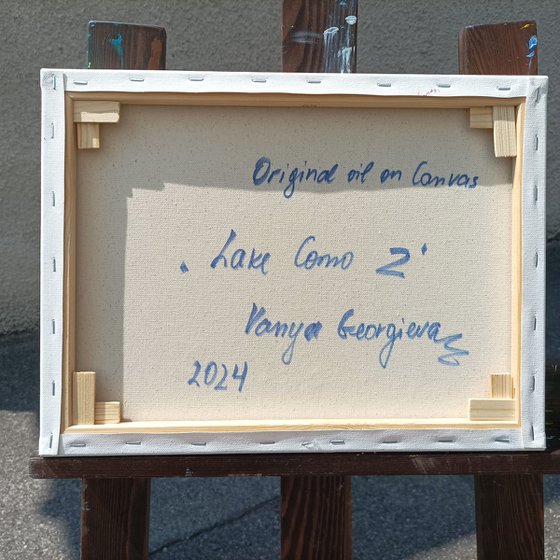 Original oil on Canvas
"Lake Como 2"
Vanya Georgieva
2024